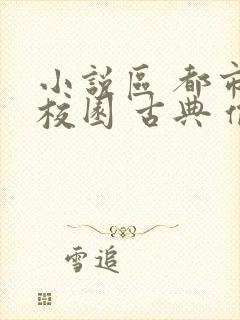 小説區 都市
校園 古典
雪追